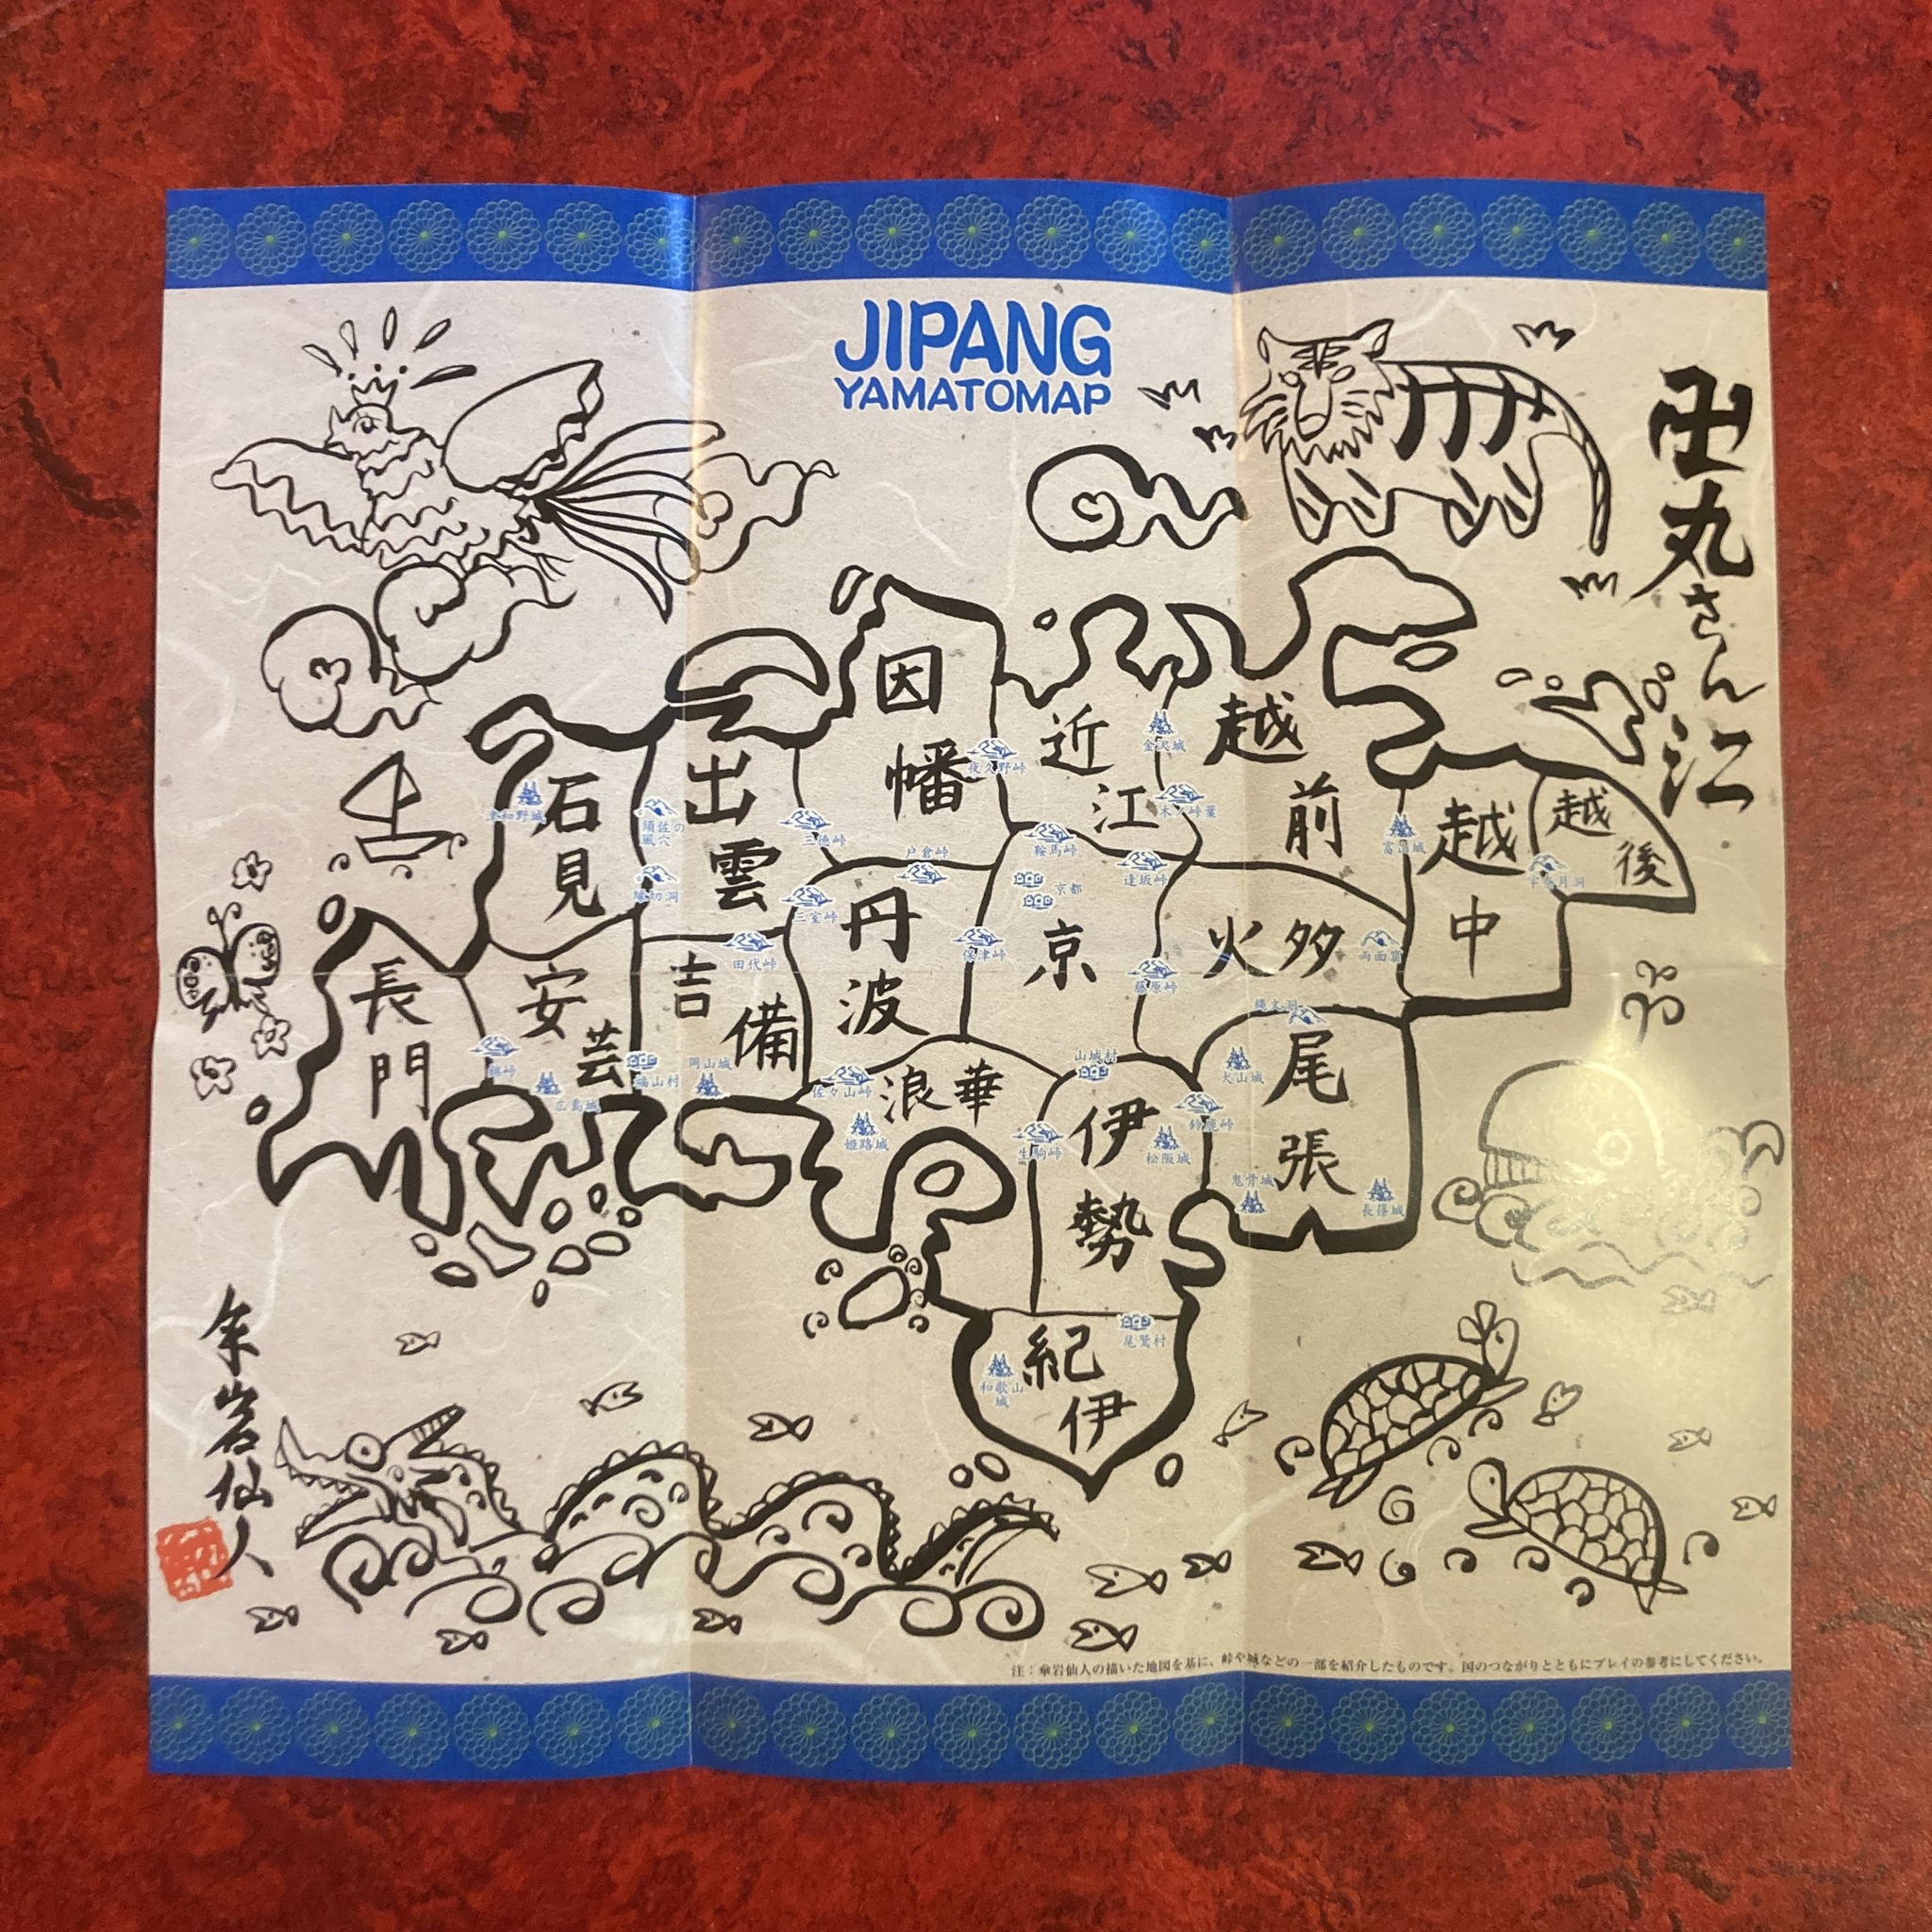 JIPANG
YAMATOMAP
卍丸さん江
因幡
近江
越前
越中
越後
石見
出雲
丹波
京
火多
長門
安芸
吉備
浪華
伊勢
尾張
紀伊
金沢城
夜久野峠
津和野城
須佐の
風穴
三徳峠
戸倉峠
鞍馬峠
逢坂峠
富山城
京都
三室峠
田代峠
保津峠
藤原峠
両面窟
縄文洞
山城村
犬山城
岡山城
福山村
広島城
佐々山峠
姫路城
生駒峠
松阪城
鈴鹿峠
鬼骨城
長篠城
尾鷲村
和歌山
城
傘岩仙人
注：傘岩仙人の描いた地図を基に、峠や城などの一部を紹介したものです。国のつながりとともにプレイの参考にしてください。